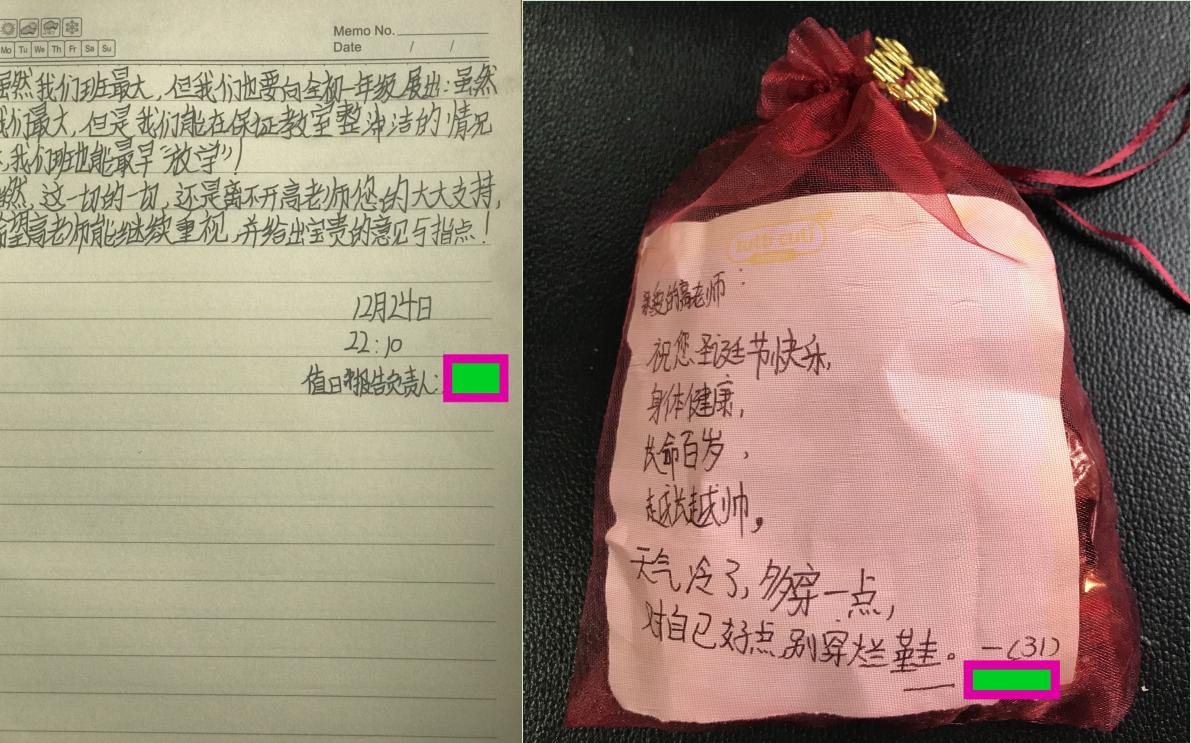 Memo No.
Date / /
Mo Tu We Th Fr Sa Su
虽然我们班最大,但我们也要向全初一年级展出:虽然
我们最大,但是我们能在保证教室整洁的情况
,我们班也能最早“放学”!
当然,这一切的一切,还是离不开高老师您的大大支持,
希望高老师能继续重视,并给出宝贵的意见与指点!
12月24日
22:10
值日报告负责人:
tutti cuti
亲爱的高老师:
祝您圣诞节快乐,
身体健康,
长命百岁,
越长越帅,
天气冷了,多穿一点,
对自己好点,别穿烂鞋。一(31)
——